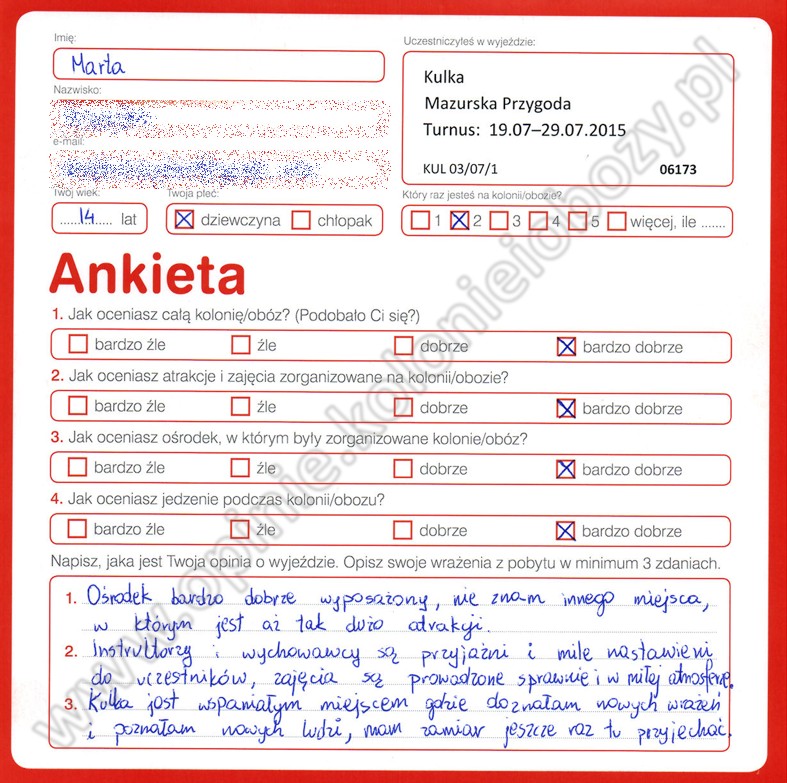 Imię:
Marta
Nazwisko:
e-mail:
Twój wiek:
14 lat
Twoja płeć:
dziewczyna chłopak
Uczestniczyłeś w wyjeździe:
Kulka
Mazurska Przygoda
Turnus: 19.07–29.07.2015
KUL 03/07/1 06173
Który raz jesteś na kolonii/obozie?
1 2 3 4 5 więcej, ile .......
Ankieta
1. Jak oceniasz całą kolonię/obóz? (Podobało Ci się?)
bardzo źle źle dobrze bardzo dobrze
2. Jak oceniasz atrakcje i zajęcia zorganizowane na kolonii/obozie?
bardzo źle źle dobrze bardzo dobrze
3. Jak oceniasz ośrodek, w którym były zorganizowane kolonie/obóz?
bardzo źle źle dobrze bardzo dobrze
4. Jak oceniasz jedzenie podczas kolonii/obozu?
bardzo źle źle dobrze bardzo dobrze
Napisz, jaka jest Twoja opinia o wyjeździe. Opisz swoje wrażenia z pobytu w minimum 3 zdaniach.
1. Ośrodek bardzo dobrze wyposażony, nie znam innego miejsca,
w którym jest aż tak dużo atrakcji.
2. Instruktorzy i wychowawcy są przyjaźni i mile nastawieni
do uczestników, zajęcia są prowadzone sprawnie i w miłej atmosferze.
3. Kulka jest wspaniałym miejscem gdzie doznałam nowych wrażeń
i poznałam nowych ludzi, mam zamiar jeszcze raz tu przyjechać.
www.opinie.kolonieiobozy.pl